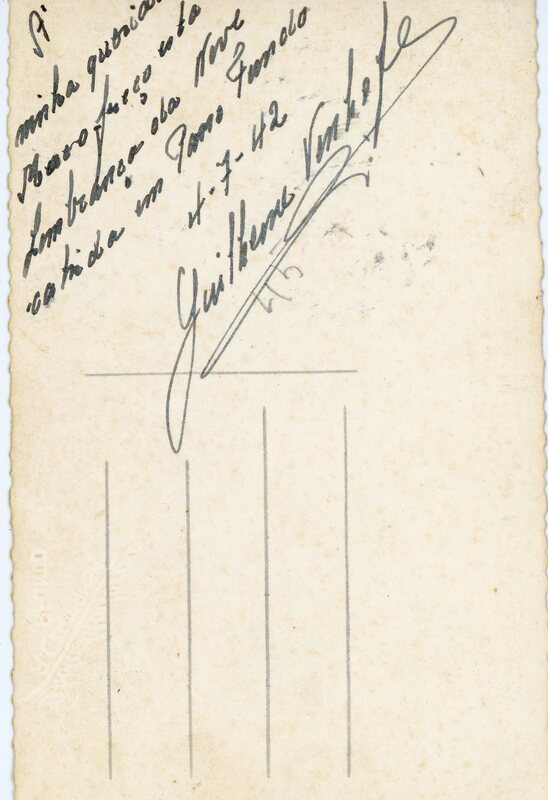 A'
minha querida
faço esta
Lembrança da Neve
cahida em Passo Fundo
4-7-42
Guilherme
5/5